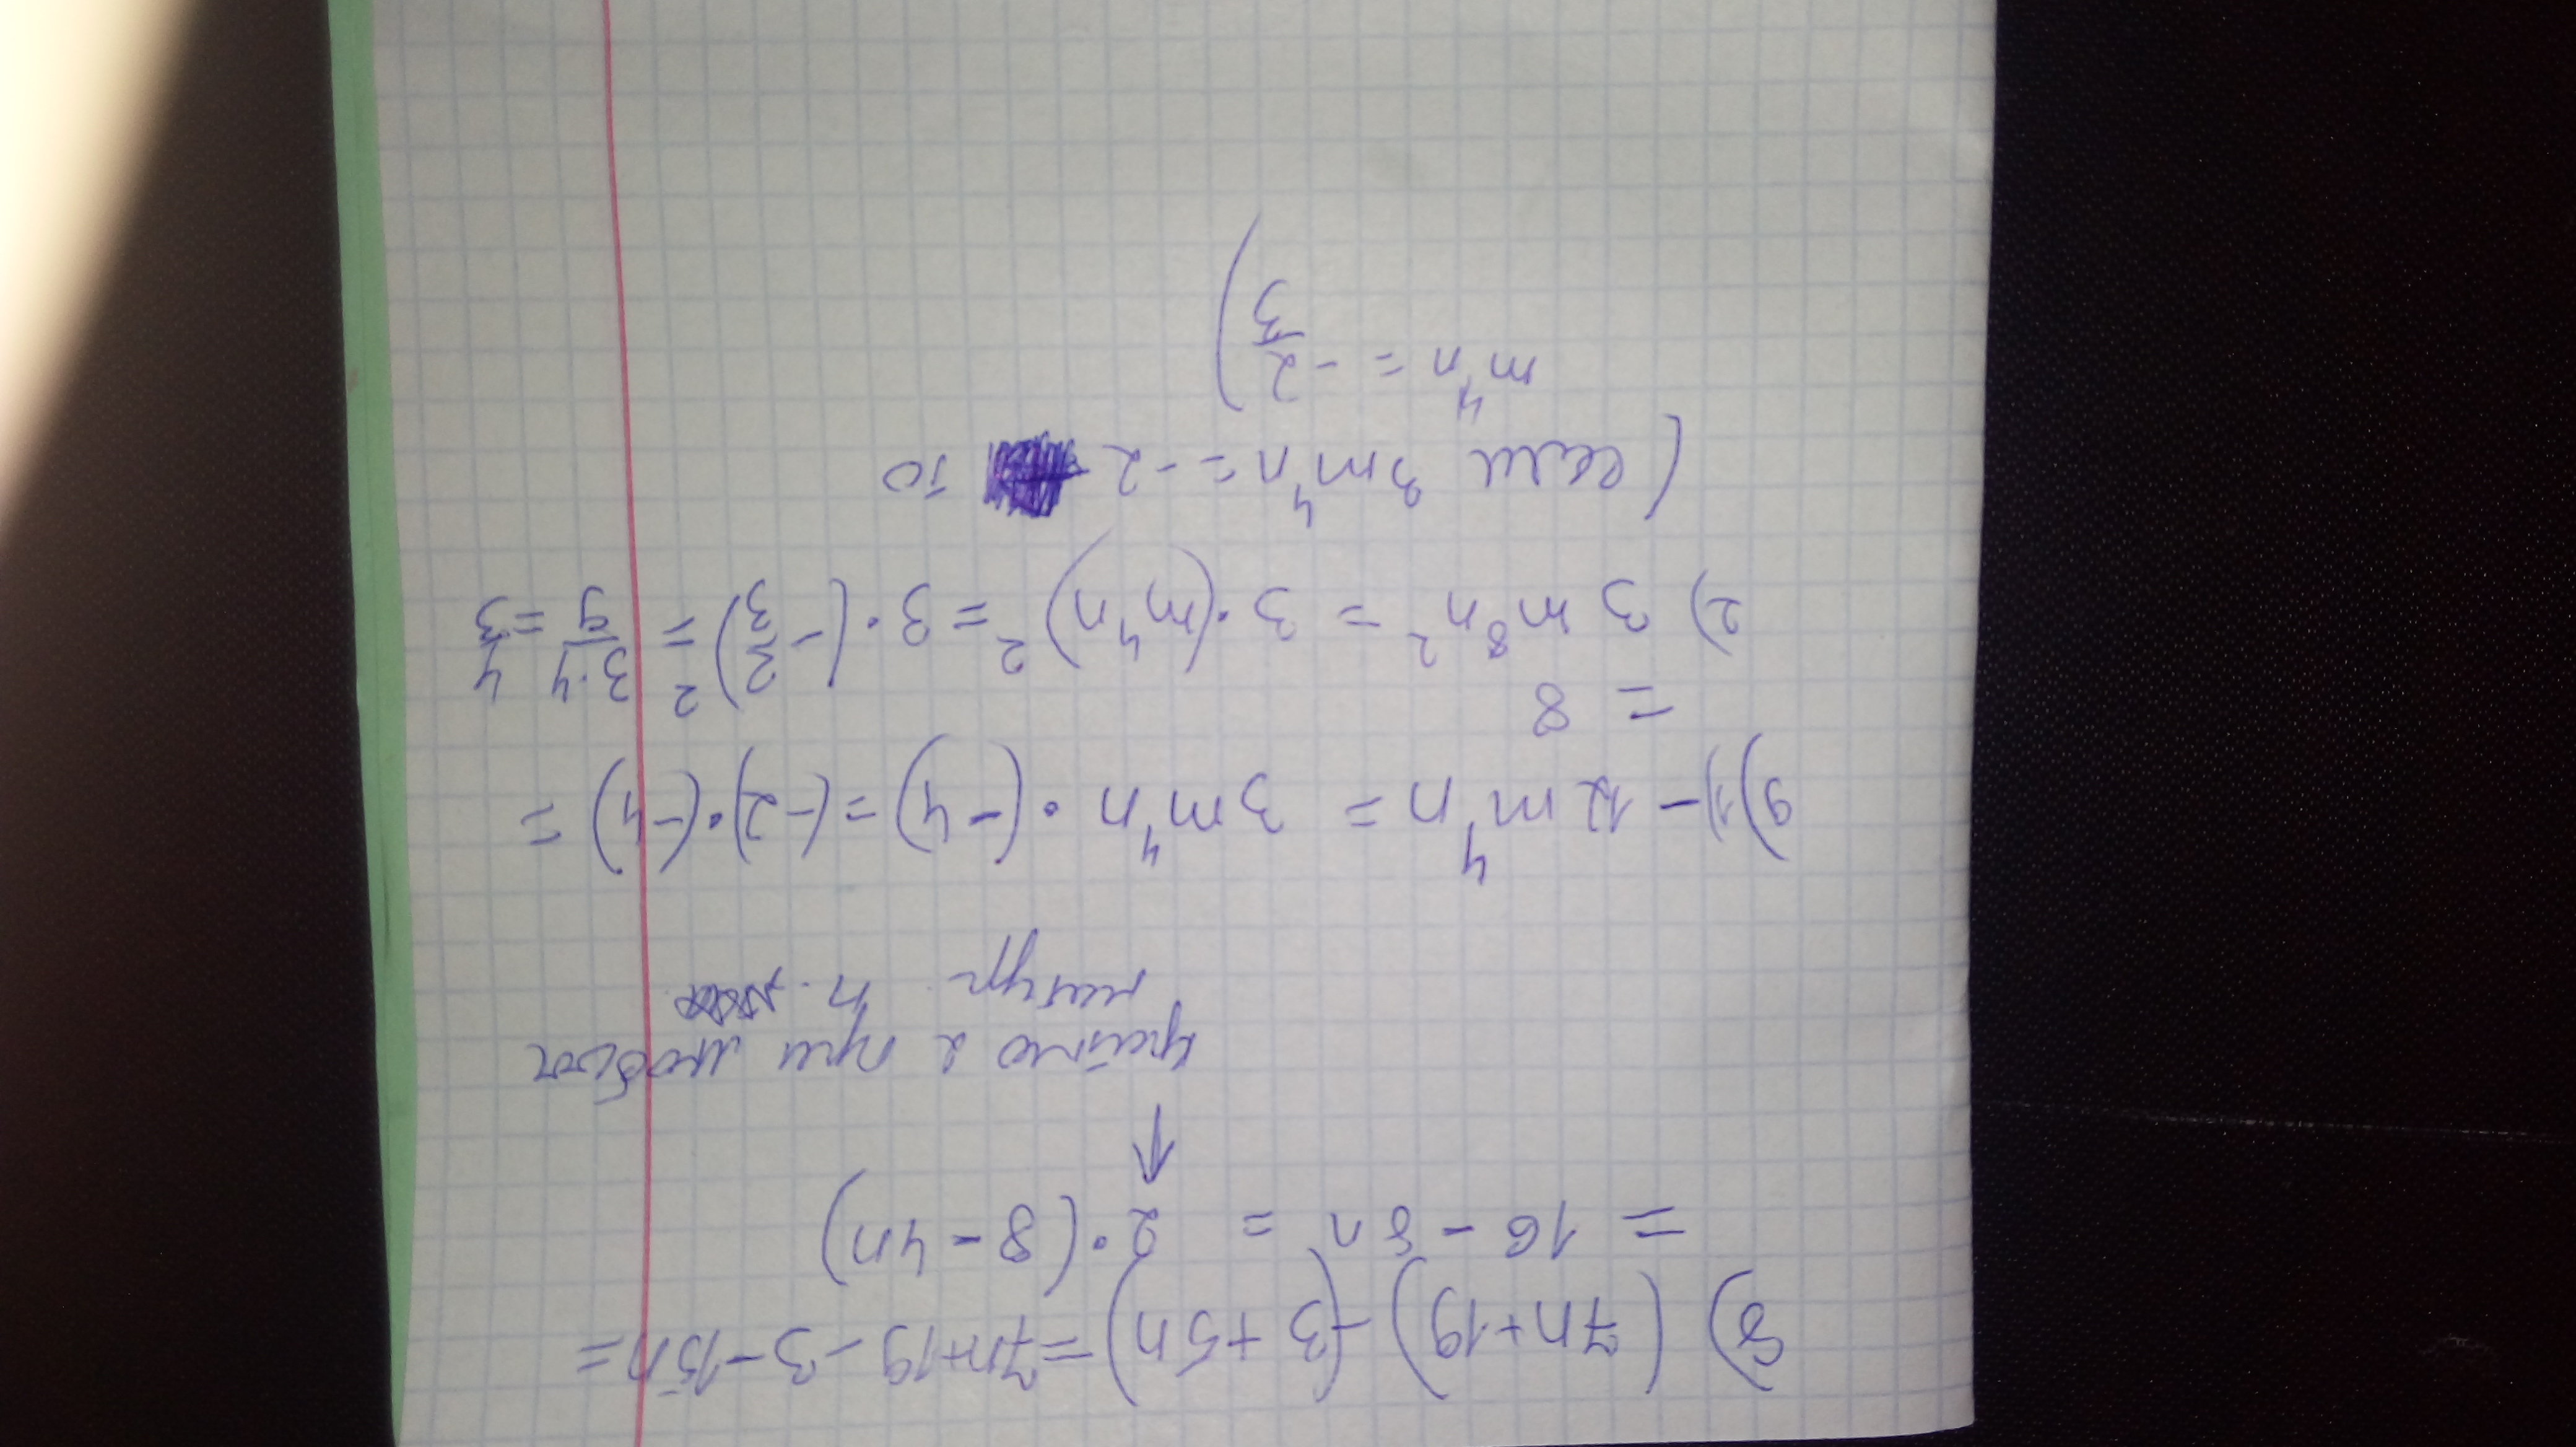 8) (7n+19)-(3+5n)=7n+19-3-15n=
= 16 - 8n = 2·(8-4n)
↓
кратно 2 при любом
натур. n.
9) 1) -12m⁴n = 3m⁴n · (-4) = (-2)·(-4) =
= 8
2) 3m⁸n² = 3·(m⁴n)² = 3·(-2/3)² = 3·4/9 = 4/3
(если 3m⁴n = -2 то
m⁴n = -2/3)